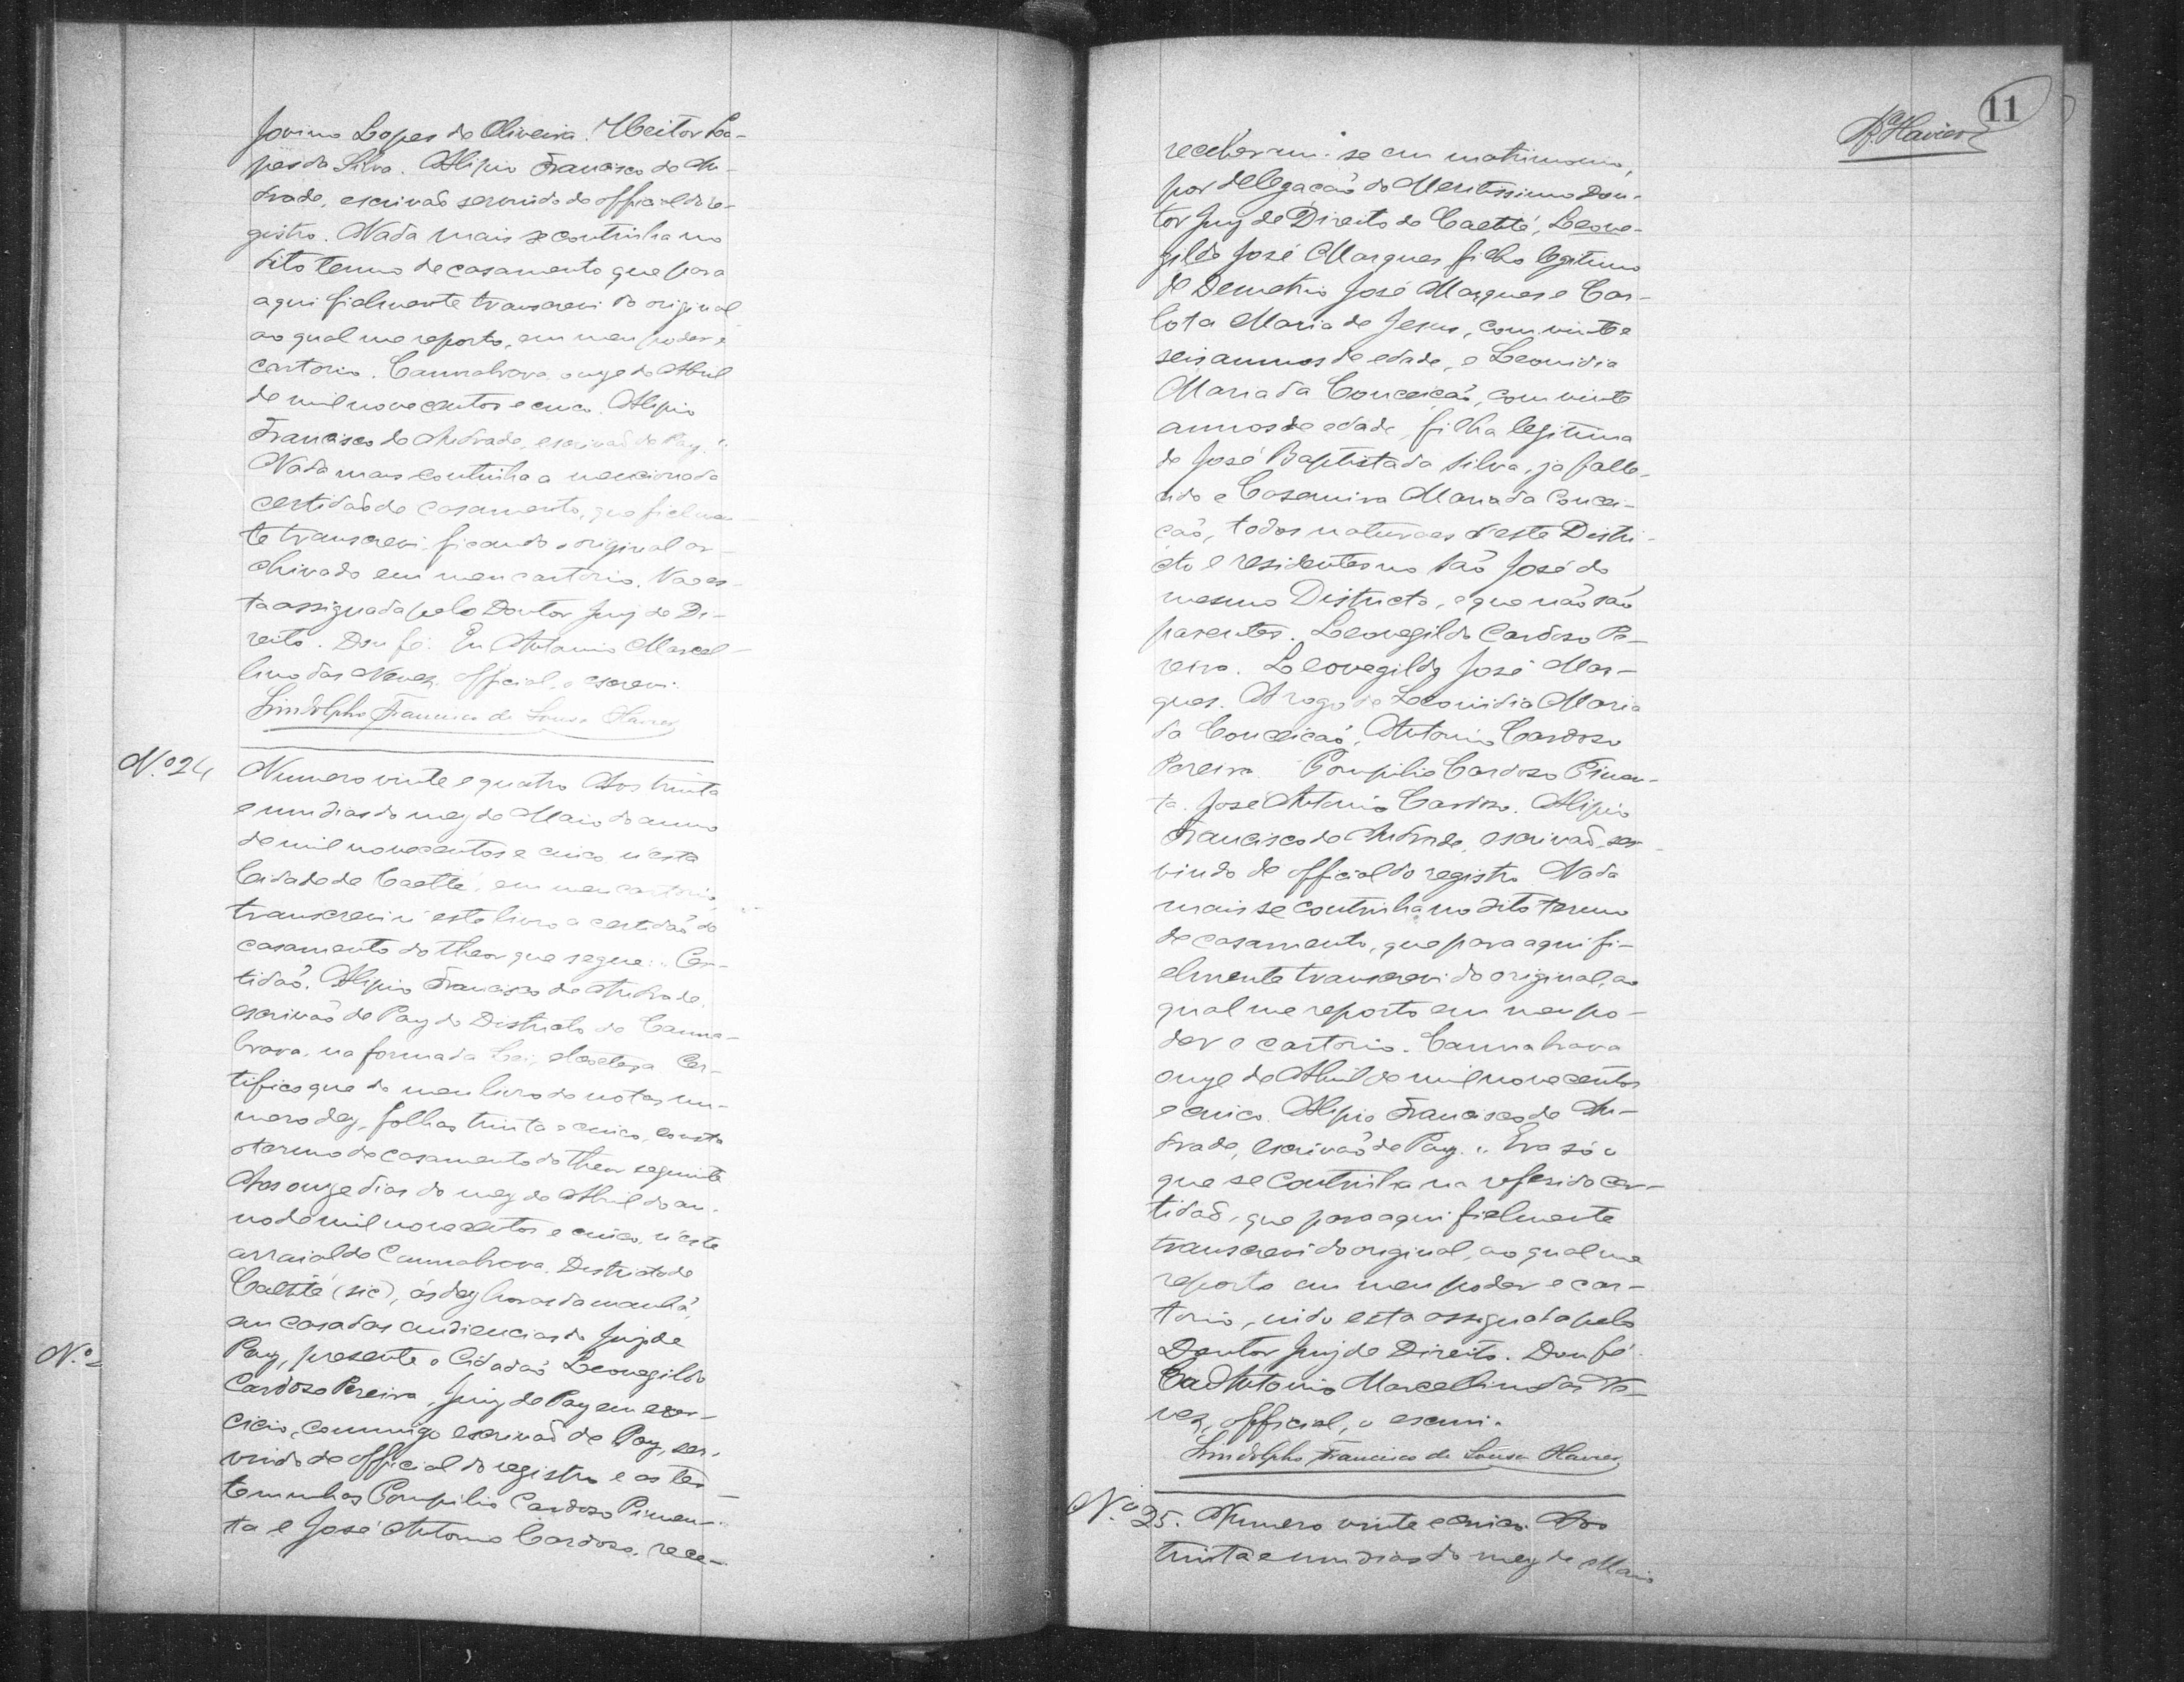 Jovino Lopes de Oliveira. Heitor Lo-
pes da Silva. Alipio Francisco de An-
drade, escrivaõ servindo de official do re-
gistro. Nada mais se continha no
dito termo de casamento que para
aqui fielmente transcrevi do original
ao qual me reporto, em meu poder e
cartorio. Cannabrava, onze de Abril
de mil novecentos e cinco. Alipio
Francisco de Andrade, escrivaõ de Paz."
Nada mais continha a mencionada
certidaõ de casamento, que fielmen-
te transcrevi, ficando o original ar-
chivado em meu cartorio. Vae es-
ta assignada pelo Doutor Juiz de Di-
reito. Dou fé. Eu Antonio Marcel-
lino das Neves, official, o escrevi.
Lindolpho Francisco de Sousa
N.º 24
Numero vinte e quatro Aos trinta
e um dias do mez de Maio do anno
de mil novecentos e cinco n'esta
Cidade de Caetité, em meu cartorio
transcrevi n'este livro a certidaõ de
casamento do theor que segue: "Cer-
tidaõ. Alipio Francisco de Andrade,
escrivaõ de Paz do Districto de Canna-
brava, na forma da Lei, etcetera. Cer-
tifico que do meu livro de notas nu-
mero dez, folhas trinta e cinco, consta
o termo de casamento do theor seguinte
Aos onze dias do mez de Abril do an-
no de mil novecentos e cinco, n'este
arraial de Cannabrava, Districto de
Caetité (sic), ás dez horas da manhã,
em casa das audiencias do Juiz de
Paz, presente o Cidadaõ Leovegildo
Cardoso Pereira, Juiz de Paz em exer-
cicio, commigo escrivaõ de Paz, ser-
vindo de official do registro e as tes-
temunhas Pompilio Cardoso Pimen-
ta e José Antonio Cardoso, rece-
N.º
11
receberam-se em matrimonio,
por delegação do Meritissimo Dou-
tor Juiz de Direito de Caetité, Leove-
gildo José Marques filho legitimo
de Demetrio José Marques e Car-
lota Maria de Jesus, com vinte e
seis annos de edade, e Leonidia
Maria da Conceicaõ, com vinte
annos de edade, filha legitima
de José Baptista da Silva, ja falle-
cido e Casemira Maria da Concei-
caõ, todos naturaes d'este Distri-
cto e residentes no Saõ José do
mesmo Districto, e que não são
parentes. Leovegildo Cardoso Pe-
reira. Leovegildo José Mar-
ques. A rogo de Leonidia Maria
da Conceicaõ, Antonio Cardoso
Pereira. Pompilio Cardoso Pimen-
ta. José Antonio Cardoso. Alipio
Francisco de Andrade, escrivaõ, ser-
vindo de official do registro. Nada
mais se continha no dito termo
de casamento, que para aqui fi-
elmente transcrevi do original, ao
qual me reporto em meu po-
der e cartorio. Cannabrava
onze de Abril de mil novecentos
e cinco. Alipio Francisco de An-
drade, escrivaõ de Paz." Era só o
que se continha na referida cer-
tidaõ, que para aqui fielmente
transcrevi do original, ao qual me
reporto em meu poder e car-
torio, indo esta assignada pelo
Doutor Juiz de Direito. Dou fé.
Eu Antonio Marcellino das Ne-
ves, official, o escrevi.
Lindolpho Francisco de Sousa
N.º 25. Numero vinte e cinco. Aos
trinta e um dias do mez de Maio